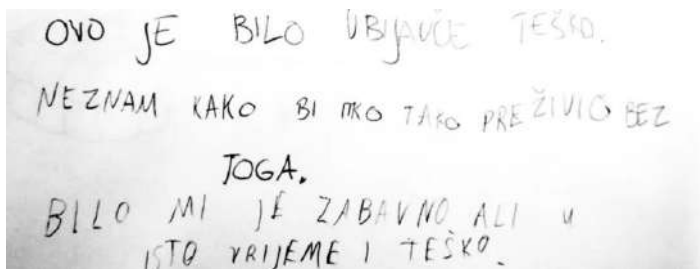 OVO JE BILO UBIJAUČE TEŠKO.
NEZNAM KAKO BI TKO TAKO PREŽIVIO BEZ
TOGA.
BILO MI JE ZABAVNO ALI U
ISTO VRIJEME I TEŠKO.